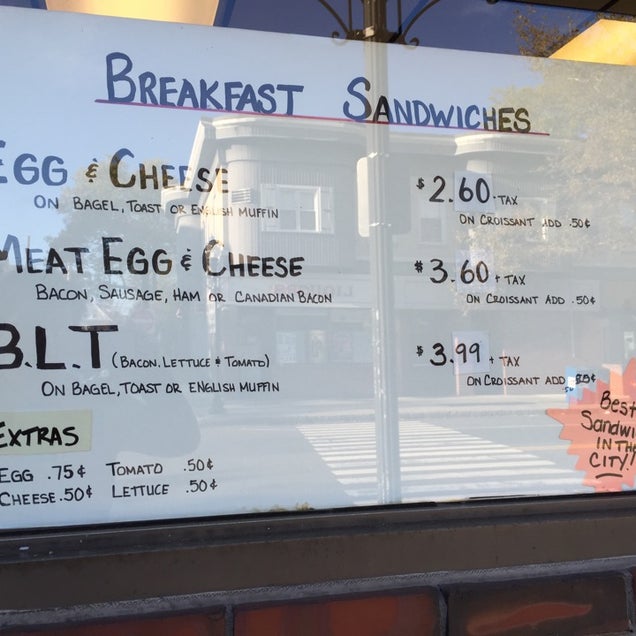 BREAKFAST SANDWICHES
EGG & CHEESE $2.60 + TAX
ON BAGEL, TOAST OR ENGLISH MUFFIN ON CROISSANT ADD .50¢
MEAT EGG & CHEESE $3.60 + TAX
BACON, SAUSAGE, HAM OR CANADIAN BACON ON CROISSANT ADD .50¢
B.L.T (BACON. LETTUCE & TOMATO) $3.99 + TAX
ON BAGEL, TOAST OR ENGLISH MUFFIN ON CROISSANT ADD
EXTRAS
EGG .75¢ TOMATO .50¢
CHEESE .50¢ LETTUCE .50¢
Best
Sandwi
IN THE
CITY!